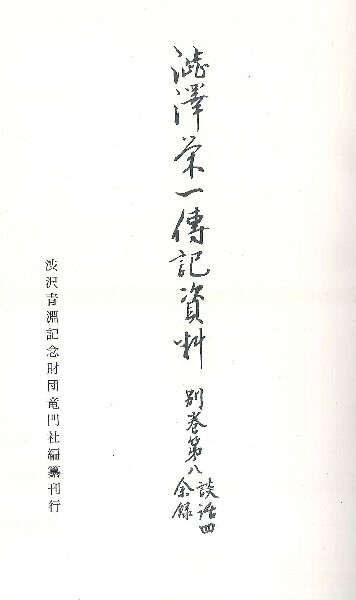 澁澤栄一傳記資料 別巻第八 談話四
余録
渋沢青淵記念財団竜門社編纂刊行